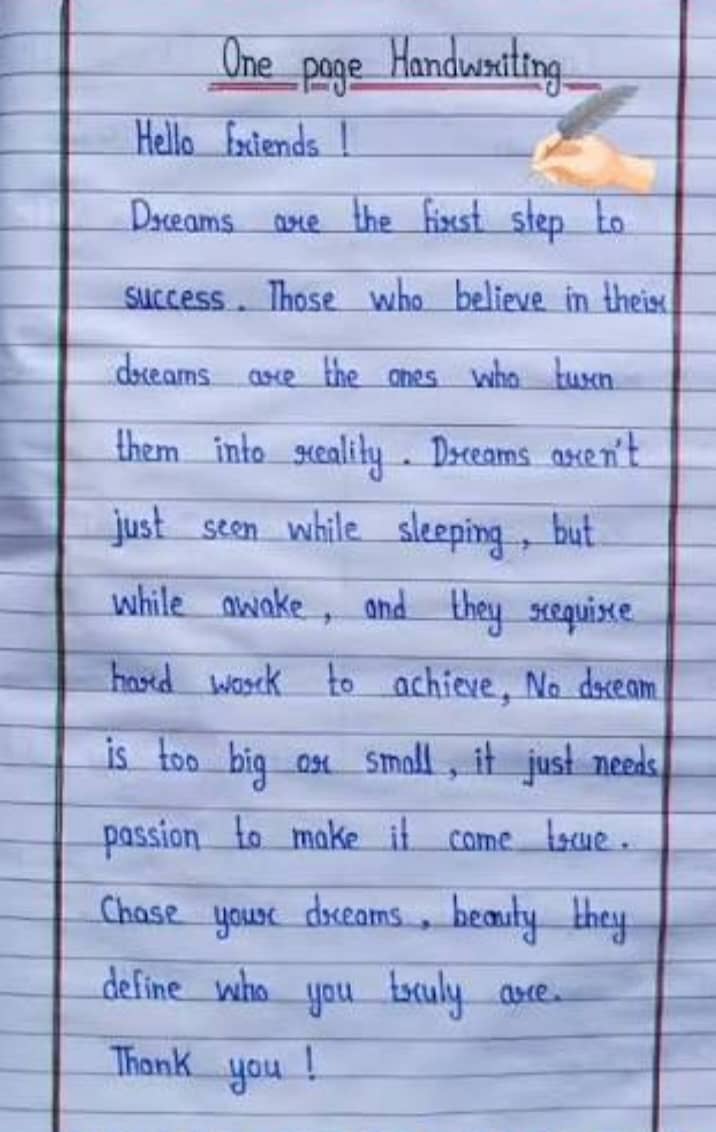 One page Handwriting
Hello friends !
Dreams are the first step to
success. Those who believe in their
dreams are the ones who turn
them into reality. Dreams aren't
just seen while sleeping, but
while awake, and they require
hard work to achieve, No dream
is too big or small, it just needs
passion to make it come true.
Chase your dreams, beauty they
define who you truly are.
Thank you !